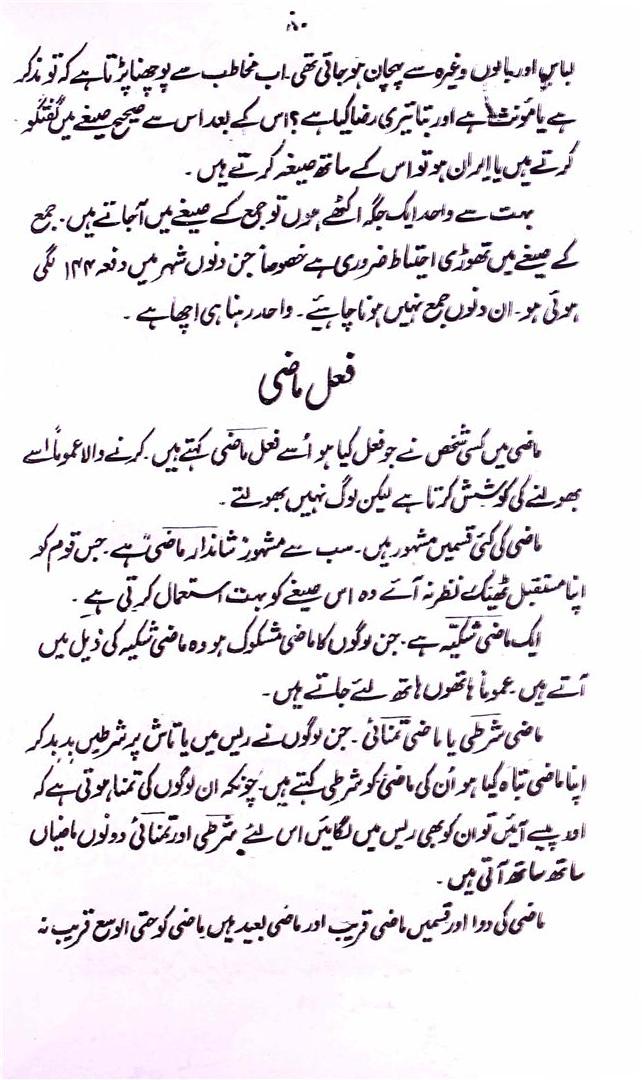 ۸۰
لباس اور بالوں وغیرہ سے پہچان ہو جاتی تھی۔ اب مخاطب سے پوچھنا پڑتا ہے کہ تو مذکر
ہے یا مؤنث ہے اور بتا تیری رضا کیا ہے؟ اس کے بعد اس سے صحیح صیغے میں گفتگو
کرتے ہیں یا ایران ہو تو اس کے ساتھ صیغہ کرتے ہیں۔
بہت سے واحد ایک جگہ اکٹھے ہوں تو جمع کے صیغے میں آجاتے ہیں۔ جمع
کے صیغے میں تھوڑی احتیاط ضروری ہے خصوصاً جن دنوں شہر میں دفعہ ۱۴۴ لگی
ہوئی ہو۔ ان دنوں جمع نہیں ہونا چاہیئے۔ واحد رہنا ہی اچھا ہے۔
فعل ماضی
ماضی میں کسی شخص نے جو فعل کیا ہو اُسے فعل ماضی کہتے ہیں۔ کرنے والا عموماً اسے
بھولنے کی کوشش کرتا ہے لیکن لوگ نہیں بھولتے۔
ماضی کی کئی قسمیں مشہور ہیں۔ سب سے مشہور شاندار ماضی ہے۔ جس قوم کو
اپنا مستقبل ٹھیک نظر نہ آئے وہ اس صیغے کو بہت استعمال کرتی ہے۔
ایک ماضی شکیّہ ہے۔ جن لوگوں کا ماضی مشکوک ہو وہ ماضی شکیہ کی ذیل میں
آتے ہیں۔ عموماً ہاتھوں ہاتھ لئے جاتے ہیں۔
ماضی شرطی یا ماضی تمنائی۔ جن لوگوں نے ریس میں یا تاش پر شرطیں بد بد کر
اپنا ماضی تباہ کیا ہو اُن کی ماضی کو شرطی کہتے ہیں۔ چونکہ ان لوگوں کی تمنا ہوتی ہے کہ
اور پیسے آئیں تو ان کو بھی ریس میں لگائیں اس لئے شرطی اور تمنائی دونوں ماضیاں
ساتھ ساتھ آتی ہیں۔
ماضی کی دو اور قسمیں ماضی قریب اور ماضی بعید ہیں۔ ماضی کو حتی الوسع قریب نہ